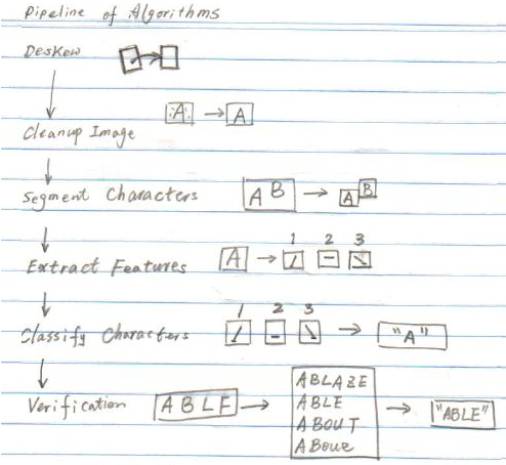 Pipeline of Algorithms
Deskew
A → A
Cleanup Image
Segment Characters A B → A B
1 2 3
Extract Features A → / – \
1 2 3
Classify Characters / – \ → "A"
ABLAZE
Verification ABLF → ABLE → "ABLE"
ABOUT
ABOUE